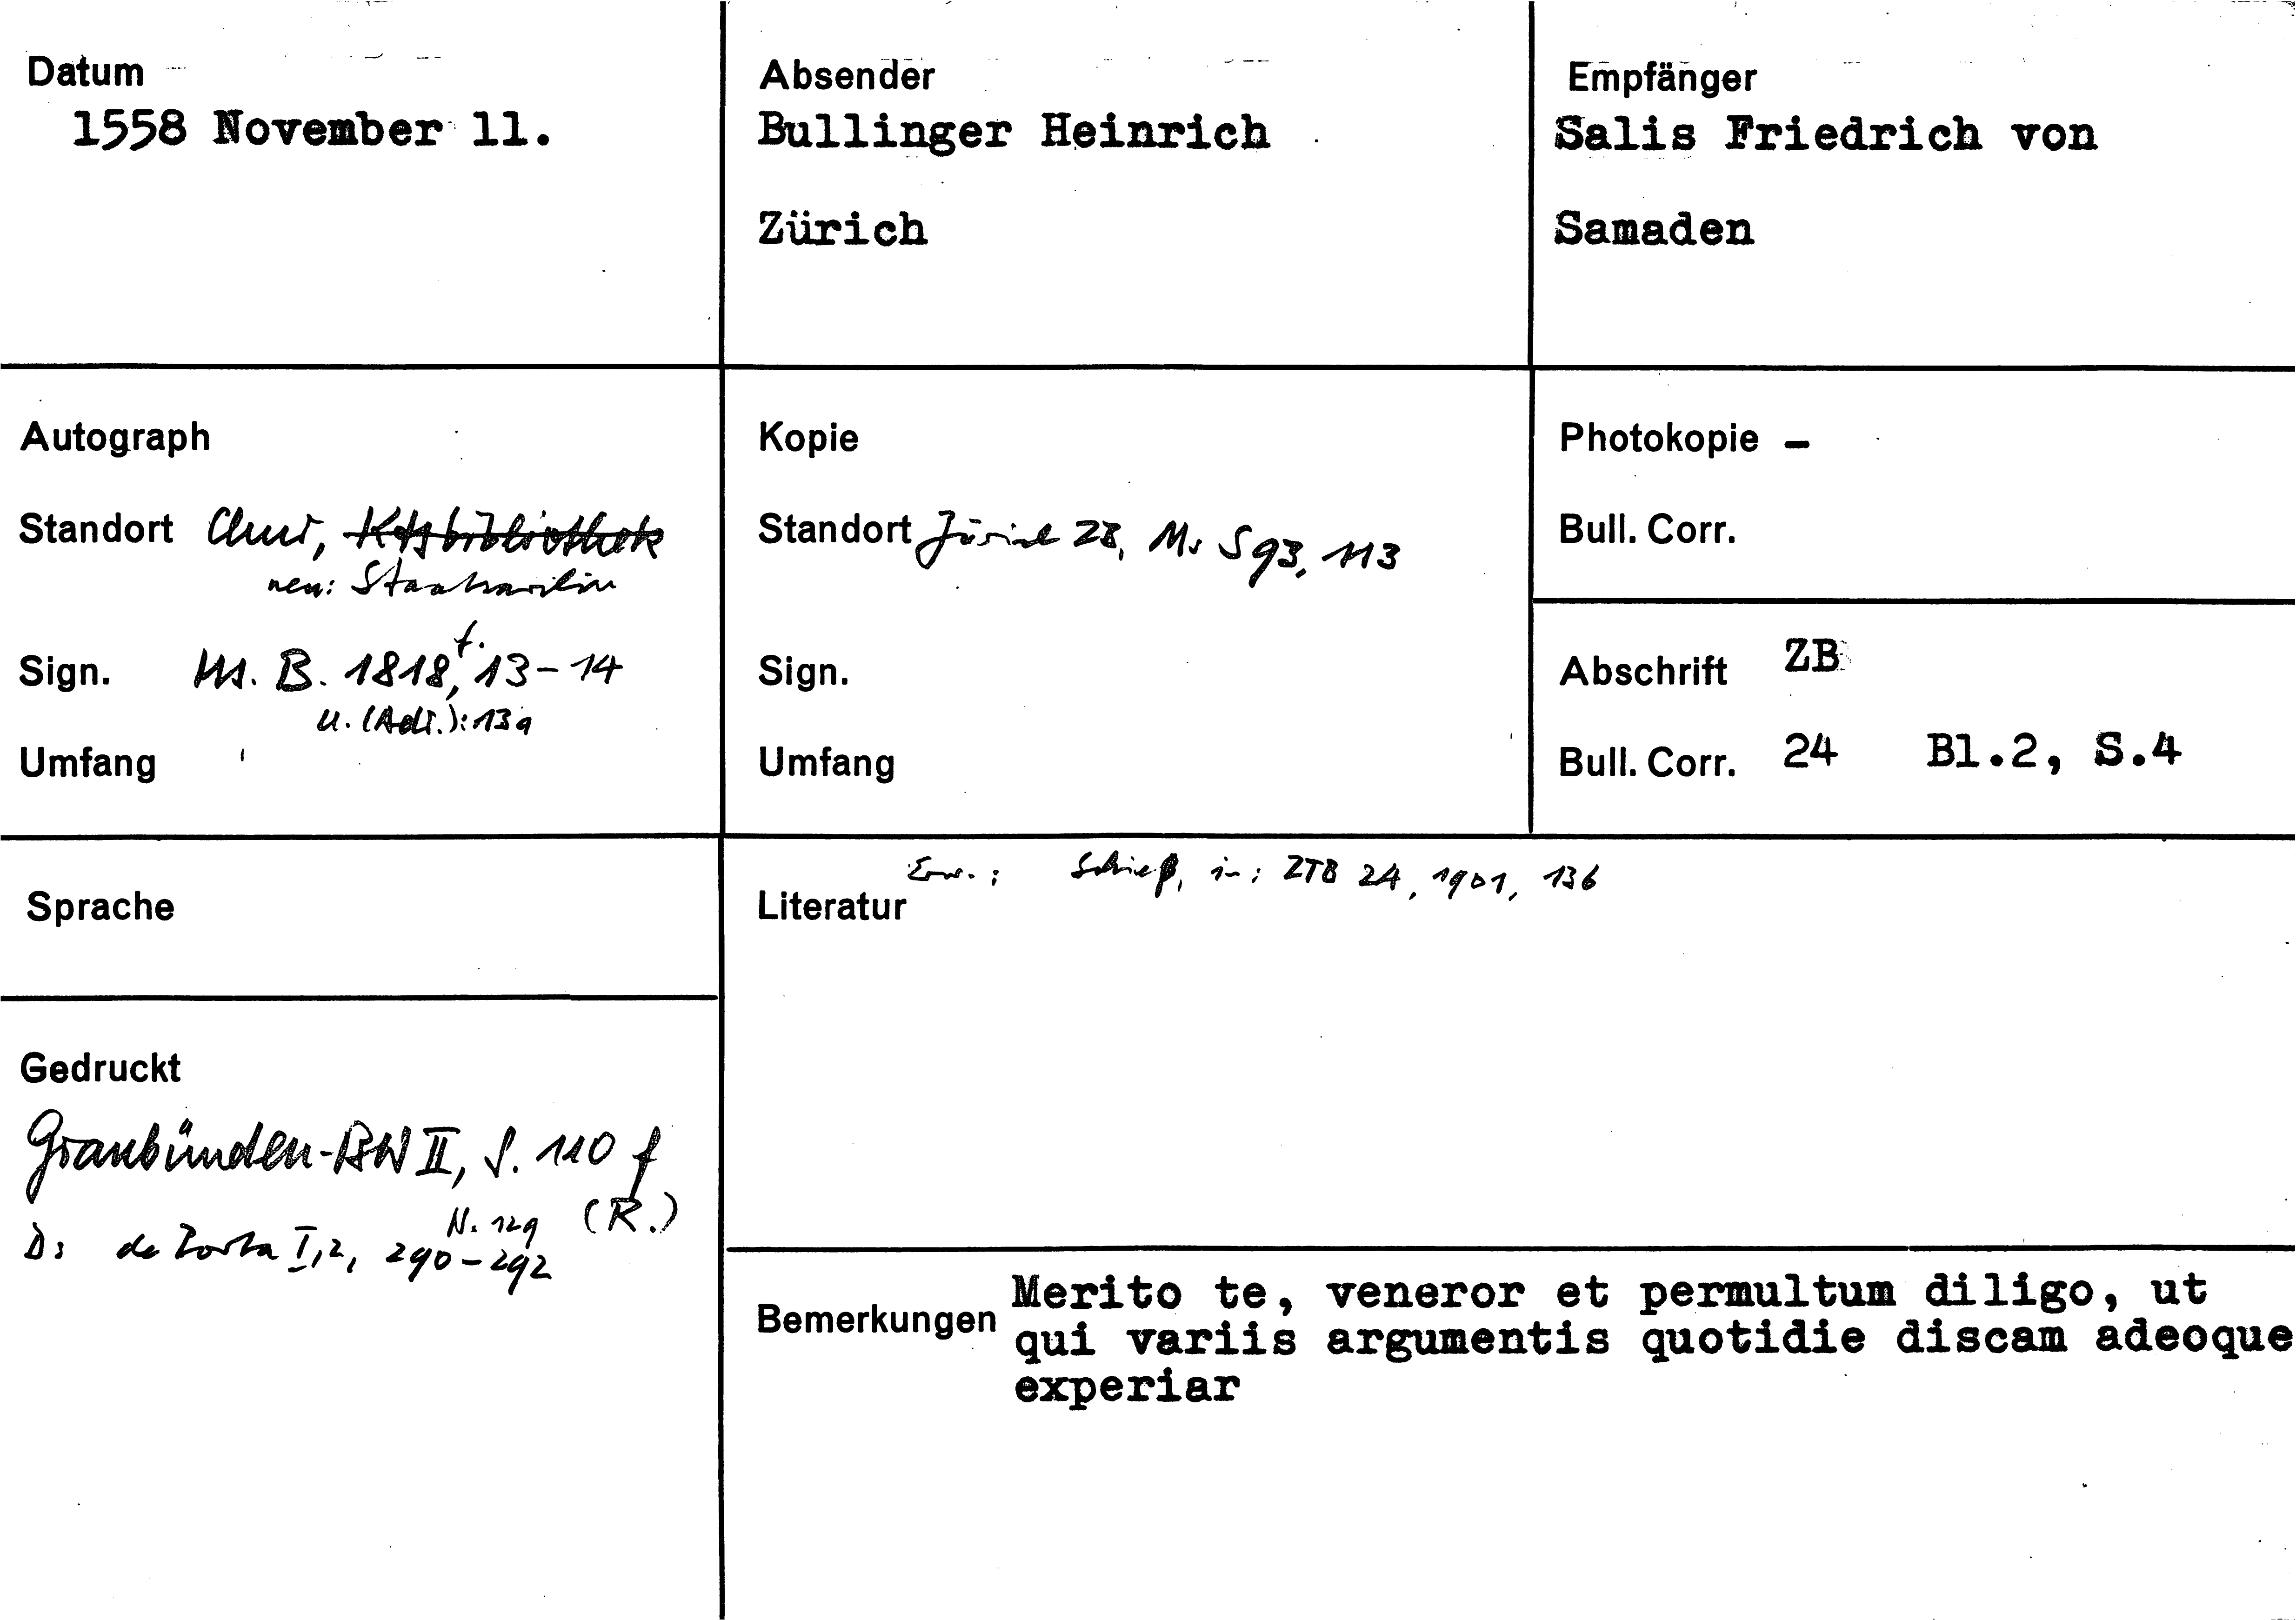 Datum
1558 November 11.
Absender
Bullinger Heinrich
Zürich
Empfänger
Salis Friedrich von
Samaden
Autograph
Standort Chur, Ktsbibliothek
neu: Staatsarchiv
Sign. Ms. B. 1818, f. 13-14
u. (Adr.): 13a
Umfang
Kopie
Standort Zürich ZB, Ms S 93, 113
Sign.
Umfang
Photokopie -
Bull. Corr.
Abschrift ZB
Bull. Corr. 24 Bl.2, S.4
Sprache
Gedruckt
Graubünden-BW II, S. 110 f
N. 129 (R.)
D: de Porta I,2, 290-292
Erw.: Schieß, in: ZTB 24, 1901, 136
Literatur
Bemerkungen Merito te, veneror et permultum diligo, ut
qui variis argumentis quotidie discam adeoque
experiar